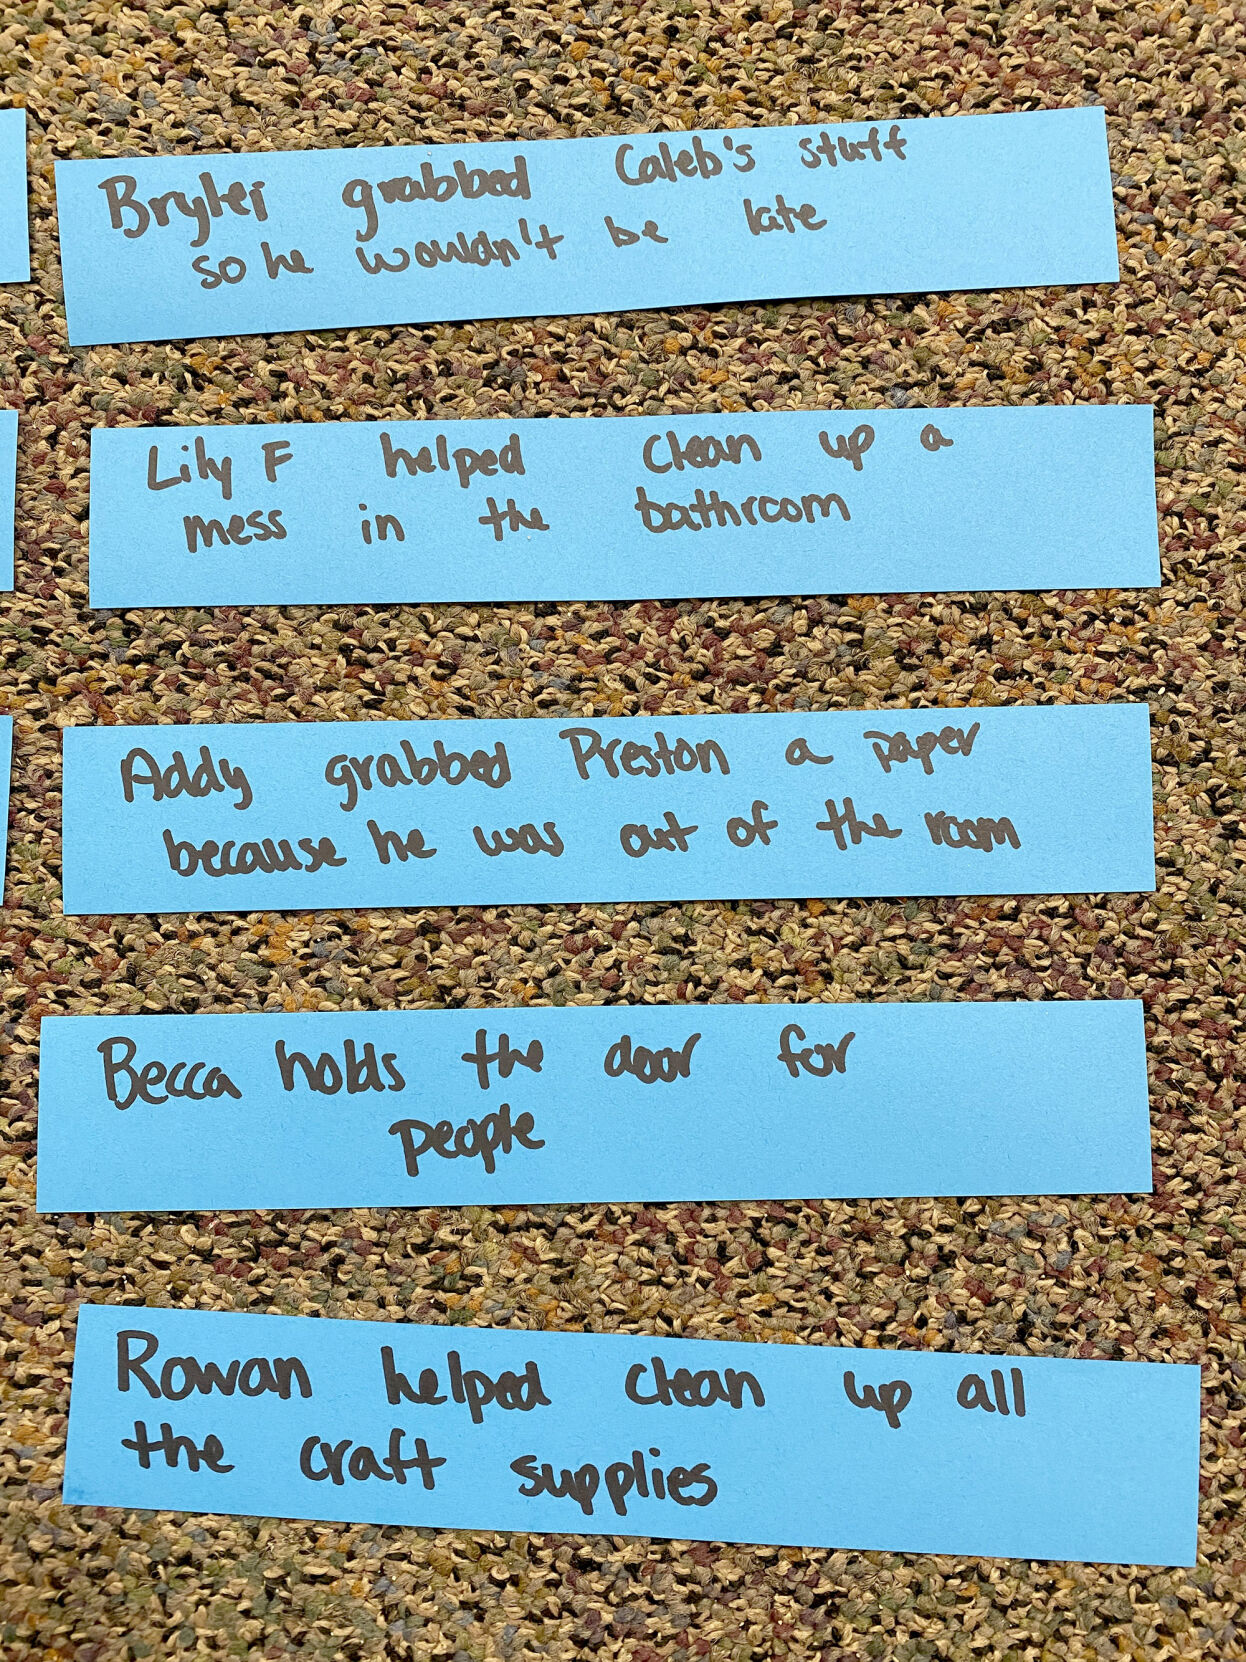 Brylei grabbed Caleb's stuff
so he wouldn't be late
Lily F helped clean up a
mess in the bathroom
Addy grabbed Preston a paper
because he was out of the room
Becca holds the door for
people
Rowan helped clean up all
the craft supplies